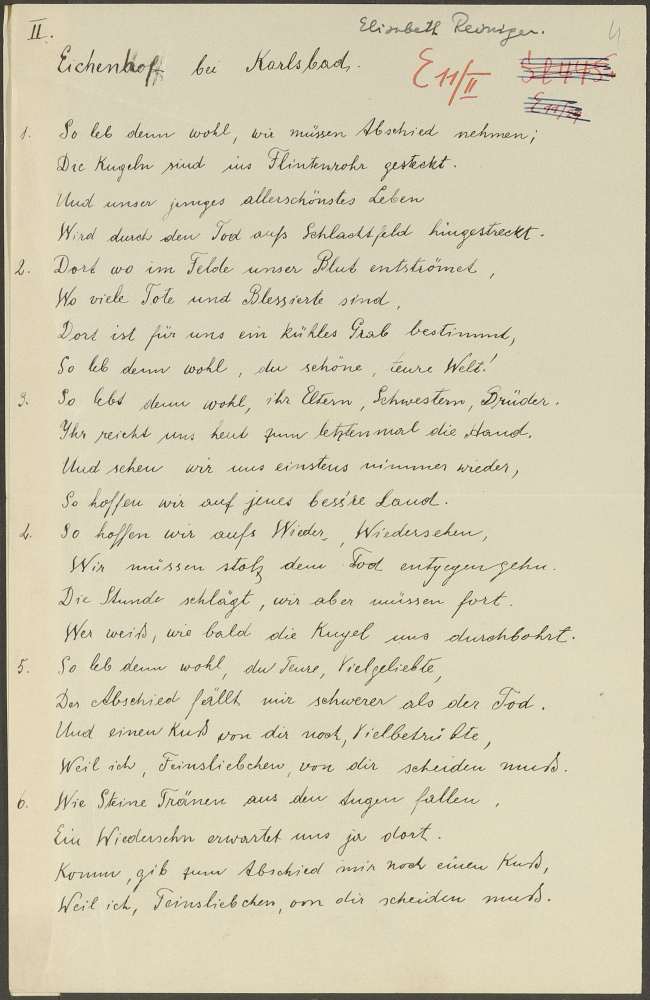 II.
Elisabeth Reiniger.
4
Eichenhoff bei Karlsbad.
E 11/II
1. So leb denn wohl, wir müssen Abschied nehmen;
Die Kugeln sind ins Flintenrohr gesteckt.
Und unser junges allerschönstes Leben
Wird durch den Tod aufs Schlachtfeld hingestreckt.
2. Dort wo im Felde unser Blut entströmet,
Wo viele Tote und Blessierte sind,
Dort ist für uns ein kühles Grab bestimmt,
So leb denn wohl, du schöne, teure Welt!
3. So lebt denn wohl, ihr Eltern, Schwestern, Brüder.
Ihr reicht uns heut zum letztenmal die Hand.
Und sehen wir uns einstens nimmer wieder,
So hoffen wir auf jenes bess're Land.
4. So hoffen wir aufs Wieder-, Wiedersehen,
Wir müssen stolz dem Tod entgegengehn.
Die Stunde schlägt, wir aber müssen fort.
Wer weiß, wie bald die Kugel uns durchbohrt.
5. So leb denn wohl, du Teure, Vielgeliebte,
Der Abschied fällt mir schwerer als der Tod.
Und einen Kuß von dir noch, Vielbetrübte,
Weil ich, Feinsliebchen, von dir scheiden muß.
6. Wie Steine Tränen aus den Augen fallen,
Ein Wiedersehn erwartet uns ja dort.
Komm, gib zum Abschied mir noch einen Kuß,
Weil ich, Feinsliebchen, von dir scheiden muß.